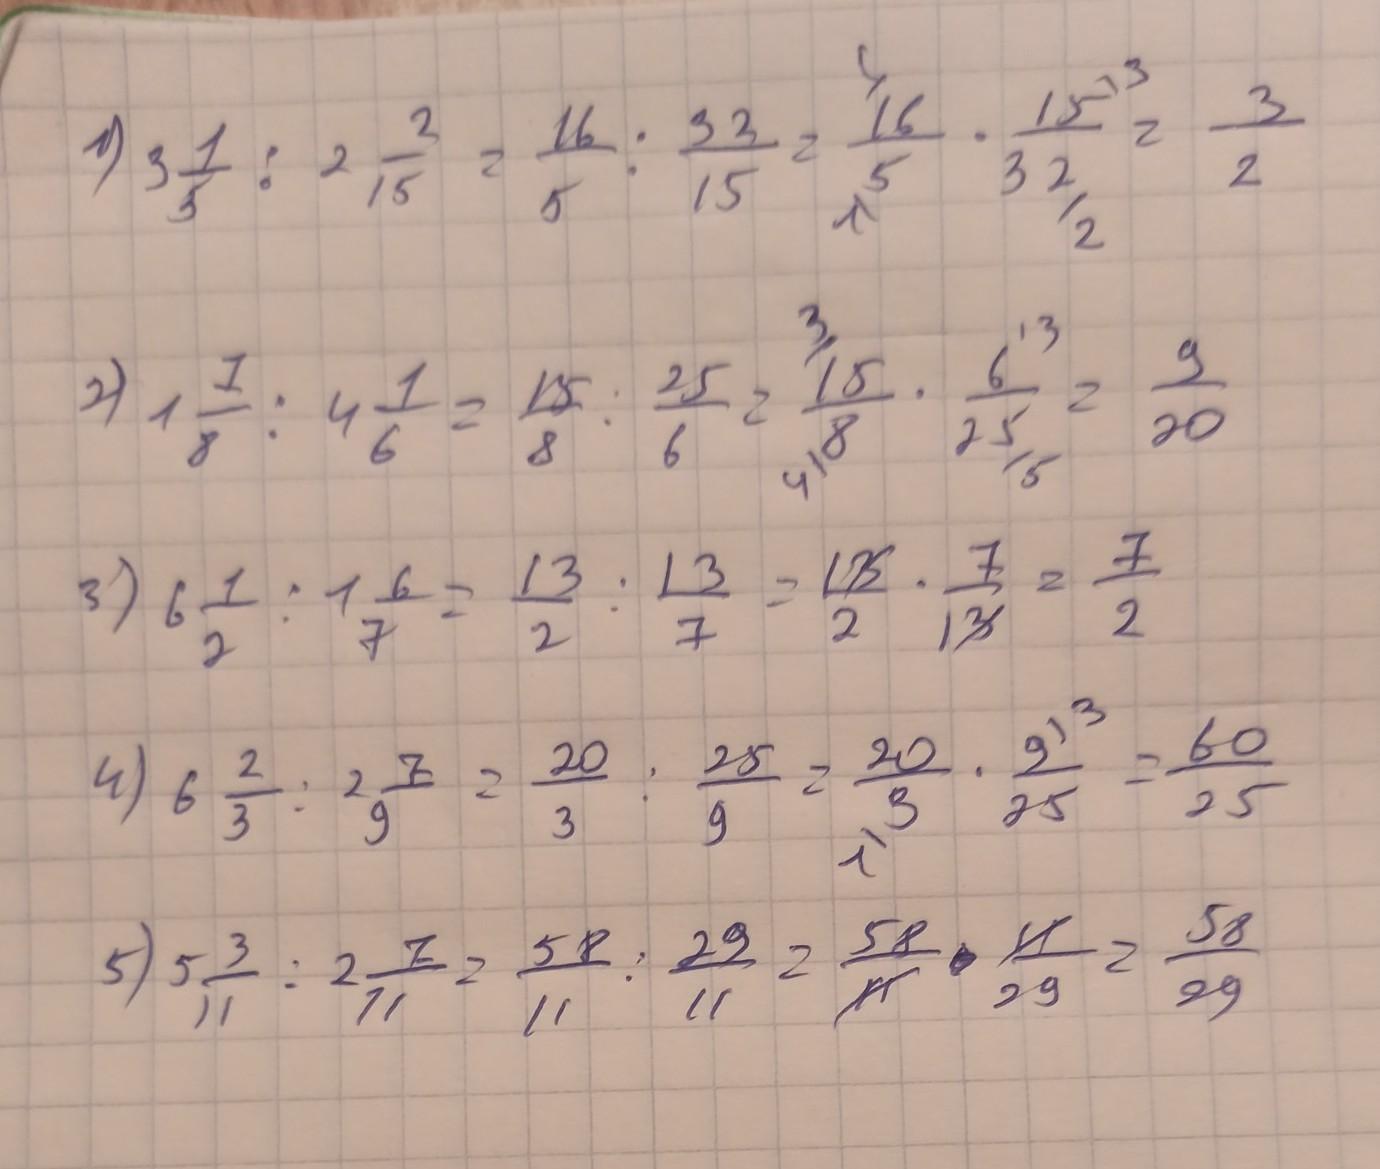 1) 3 1/5 : 2 2/15 = 16/5 : 32/15 = 16/5 · 15/32 = 3/2
2) 1 7/8 : 4 1/6 = 15/8 : 25/6 = 15/8 · 6/25 = 9/20
3) 6 1/2 : 1 6/7 = 13/2 : 13/7 = 13/2 · 7/13 = 7/2
4) 6 2/3 : 2 7/9 = 20/3 : 25/9 = 20/3 · 9/25 = 60/25
5) 5 3/11 : 2 7/11 = 58/11 : 29/11 = 58/11 · 11/29 = 58/29